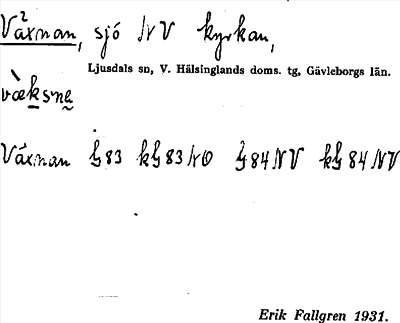 Växnan, sjö NV kyrkan,
Ljusdals sn, V. Hälsinglands doms. tg, Gävleborgs län.
væ̀ksne
Växnan 83 83 NO 84 NV 84 NV
Erik Fallgren 1931.